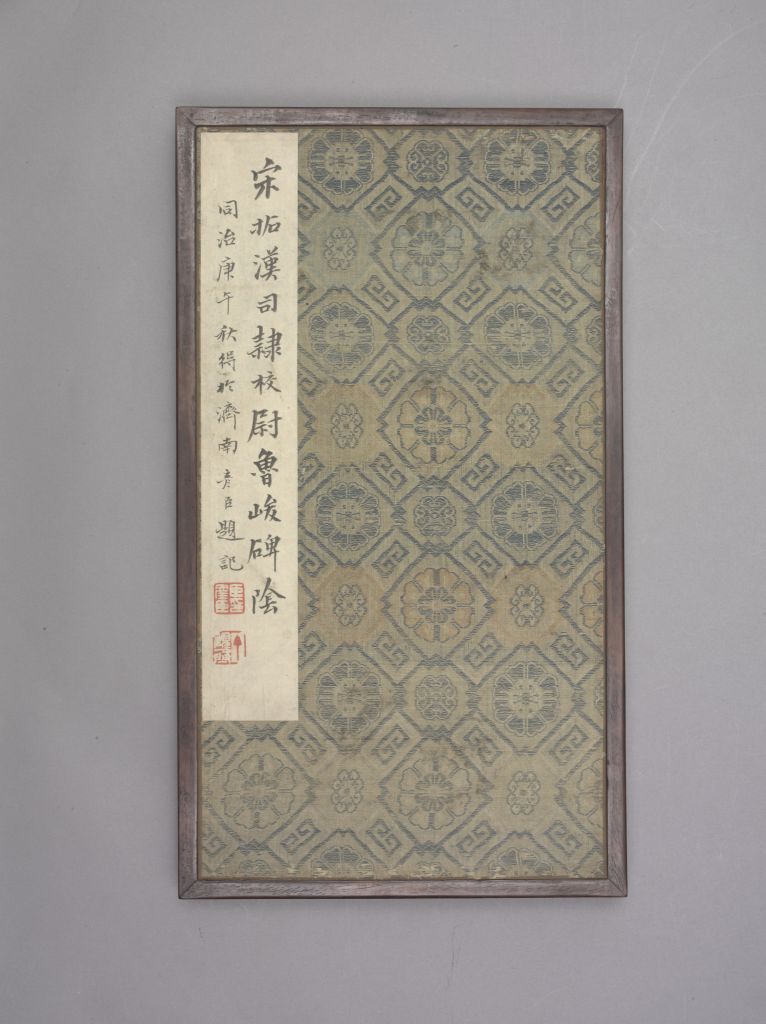 宋拓漢司隸校尉魯峻碑陰
同治庚午秋得於濟南彥臣題記